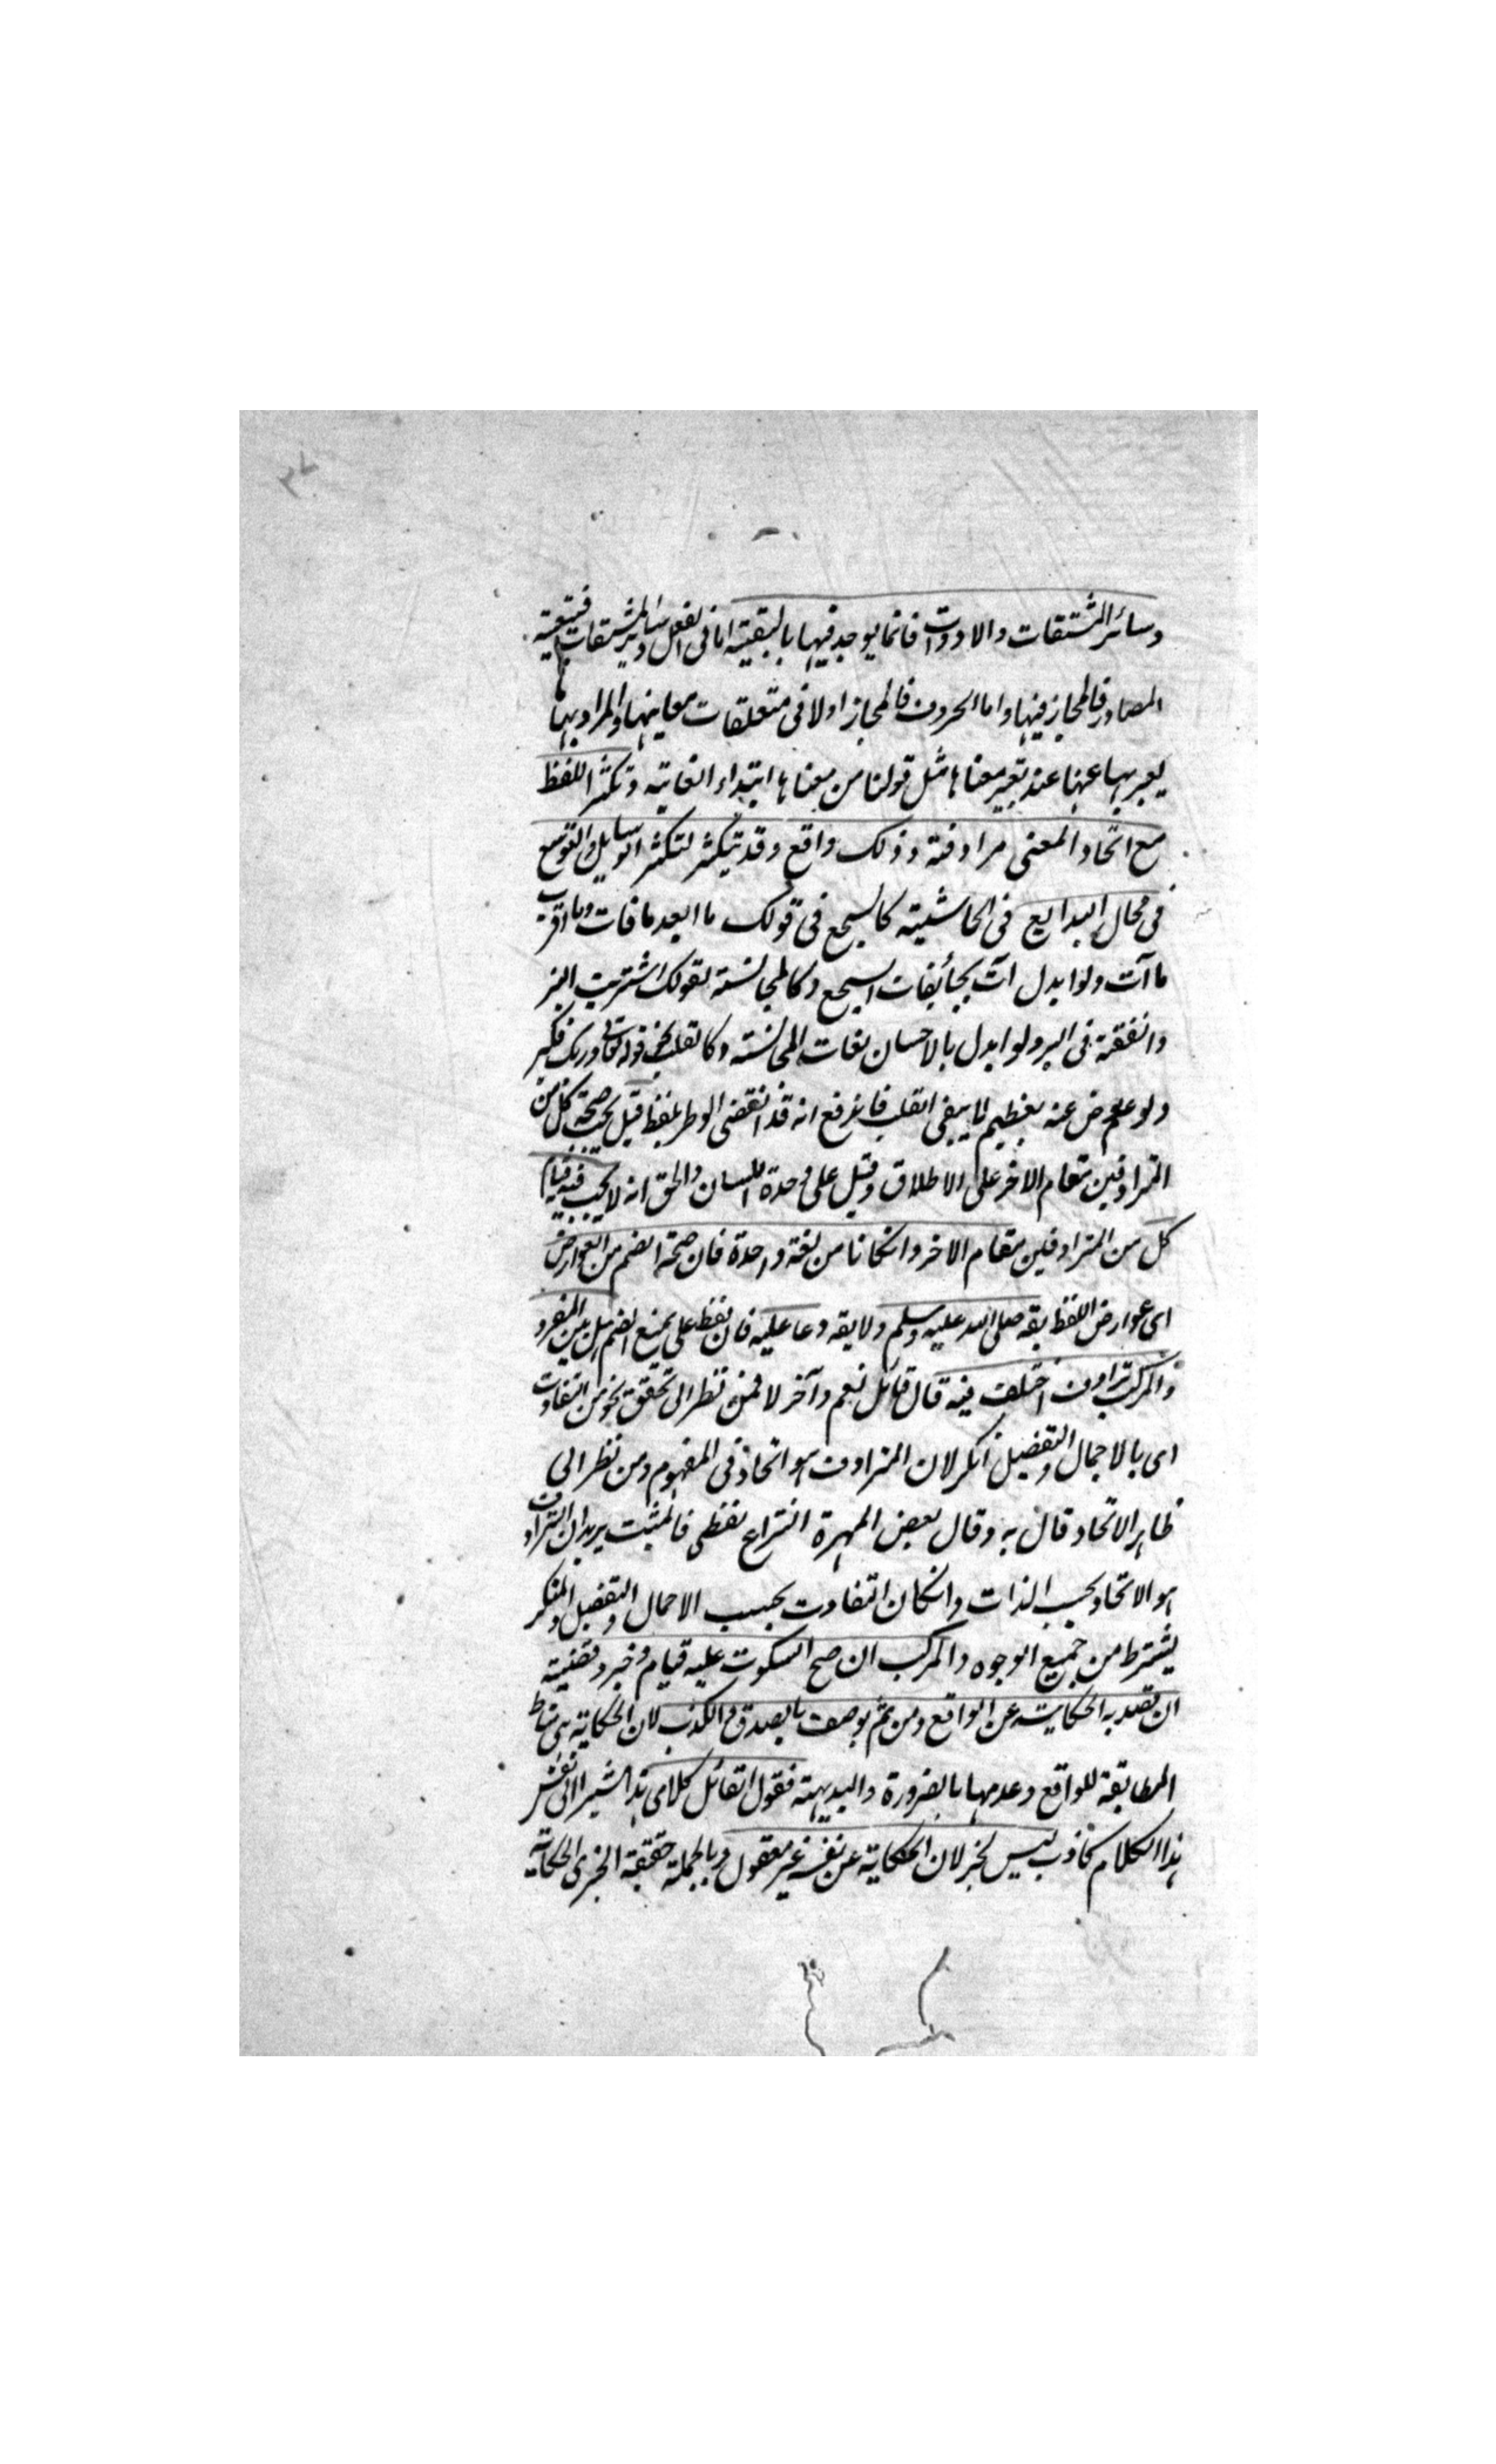 ٣٧
وسائر المشتقات والادوات فانما يوجد فيها بالتبعية اما فى الفعل وسائر المشتقات فبتبعية
المصادر فالمجاز فيها واما الحروف فالمجاز اولا فى متعلقات معانيها والمراد بها ما
يعبر بها عنها عند تعبير معناها مثل قولنا من معناها ابتداء الغاية وتكثر اللفظ
مع اتحاد المعنى مرادفة وذلك واقع وقد يتكثر لتكثر الوسايل والتوسع
فى محال البدايع فى الحاشية كالسجع فى قولك ما ابعد ما فات وما اقرب
ما آت ولو ابدل آت بجائ لفات السجع وكالمجانسة لقولك اشتريت البر
وانفقته فى البر ولو ابدل بالاحسان لفات المجانسة وكالقلب نحو قوله تعالى وربك فكبر
ولو عوض عنه بعظيم لما يبقى القلب فاندفع انه قد انقضى الوطر بلفظ قيل يجب صحة كل من
المترادفين مقام الاخر على الاطلاق وقيل على وحدة اللسان والحق انه لا يجب فيه قيام
كل من المترادفين مقام الاخر وانكانا من لغة واحدة فان صحة الضم من العوارض
اى عوارض اللفظ يقه صلى الله عليه وسلم ولا يقه دعا عليه فان لفظ على يمنع الضم هل بين المفرد
والمركب ترادف اختلف فيه قال قائل نعم وآخر لا فمن نظر الى تحقق نحو من التفاوت
اى بالاجمال والتفصيل انكر لان المترادف هو اتحاد فى المفهوم ومن نظر الى
ظاهر الاتحاد قال به وقال بعض المهرة النزاع لفظى فالمثبت يريد ان الترادف
هو الاتحاد بحسب الذات وانكان التفاوت بحسب الاجمال والتفصيل والمنكر
يشترط من جميع الوجوه والمركب ان صح السكوت عليه فتام وخبر وقضية
ان قصد به الحكاية عن الواقع ومن ثم يوصف بالصدق والكذب لان الحكاية هى مناط
المطابقة للواقع وعدمها بالضرورة والبديهة فقول القائل كلامى هذا مشيرا الى نفس
هذا الكلام كاذب ليس بخبر لان الحكاية عن نفسه غير معقول وبالجملة حقيقة الخبرى الحكاية